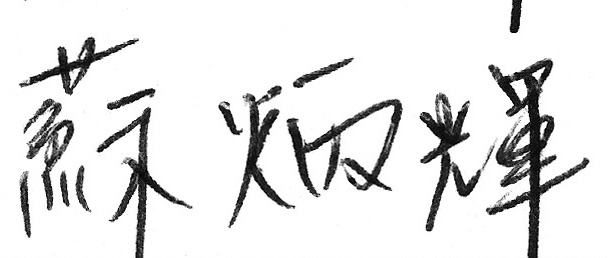 蘇炳輝